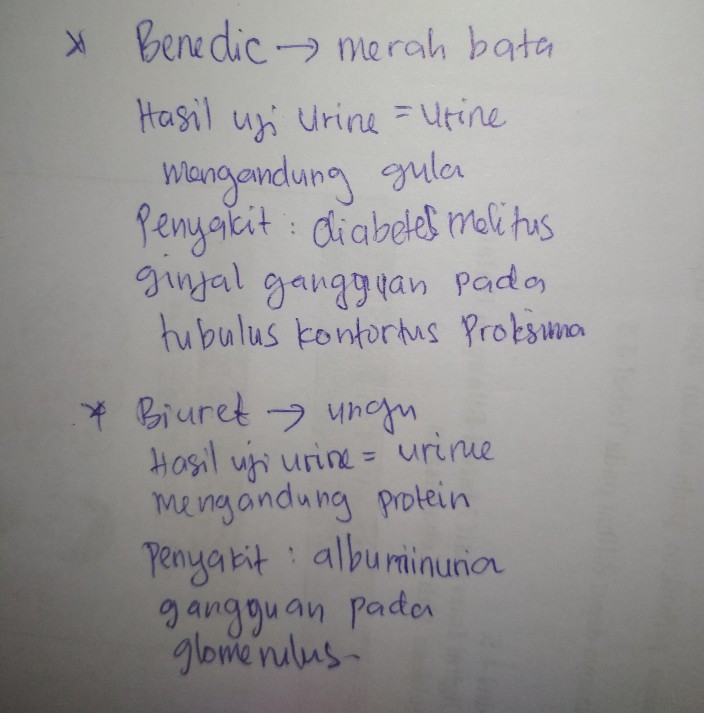 * Benedic → merah bata
Hasil uji urine = urine
mengandung gula
Penyakit : diabetes melitus
ginjal gangguan pada
tubulus kontortus Proksima
* Biuret → ungu
Hasil uji urine = urine
mengandung protein
Penyakit : albuminuria
gangguan pada
glomerulus-